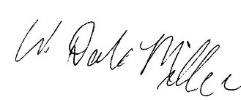 W. Dale Miller